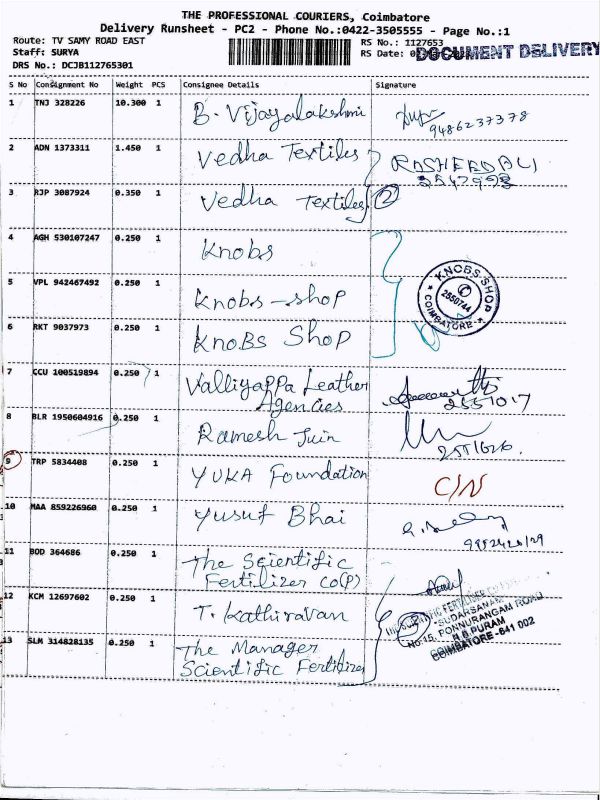 THE PROFESSIONAL COURIERS, Coimbatore
Delivery Runsheet - PC2 - Phone No.:0422-3505555 - Page No.:1
Route: TV SAMY ROAD EAST
RS No.: 1127653
Staff: SURYA
RS Date:
DOCUMENT DELIVERY
DRS No.: DCJB112765301
S No Consignment No Weight PCS Consignee Details Signature
1 TNJ 328226 10.300 1 B. Vijayalakshmi
9486237378
2 ADN 1373311 1.450 1 Vedha Textiles RASHEED ALI
3 RJP 3087924 0.350 1 Vedha Textiles 2
4 AGH 530107247 0.250 1 Knobs
KNOBS SHOP
2550744
COIMBATORE
5 VPL 942467492 0.250 1 Knobs-shop
6 RKT 9037973 0.250 1 KnoBs Shop
7 CCU 100519894 0.250 1 Valliyappa Leather
Agencies
2551017
8 BLR 1950604916 0.250 1 Ramesh Juin
9 TRP 5834408 0.250 1 YUKA Foundation C/N
10 MAA 859226960 0.250 1 Yusuf Bhai
11 BOD 364686 0.250 1 The Scientific
Fertilizer Co(P)
12 KCM 12697602 0.250 1 T. Kathiravan
"SUDARSANAM"
No 15, PONNURANGAM ROAD
R.S.PURAM
COIMBATORE-641 002
13 SLM 314828135 0.250 1 The Manager
Scientific Fertilizer